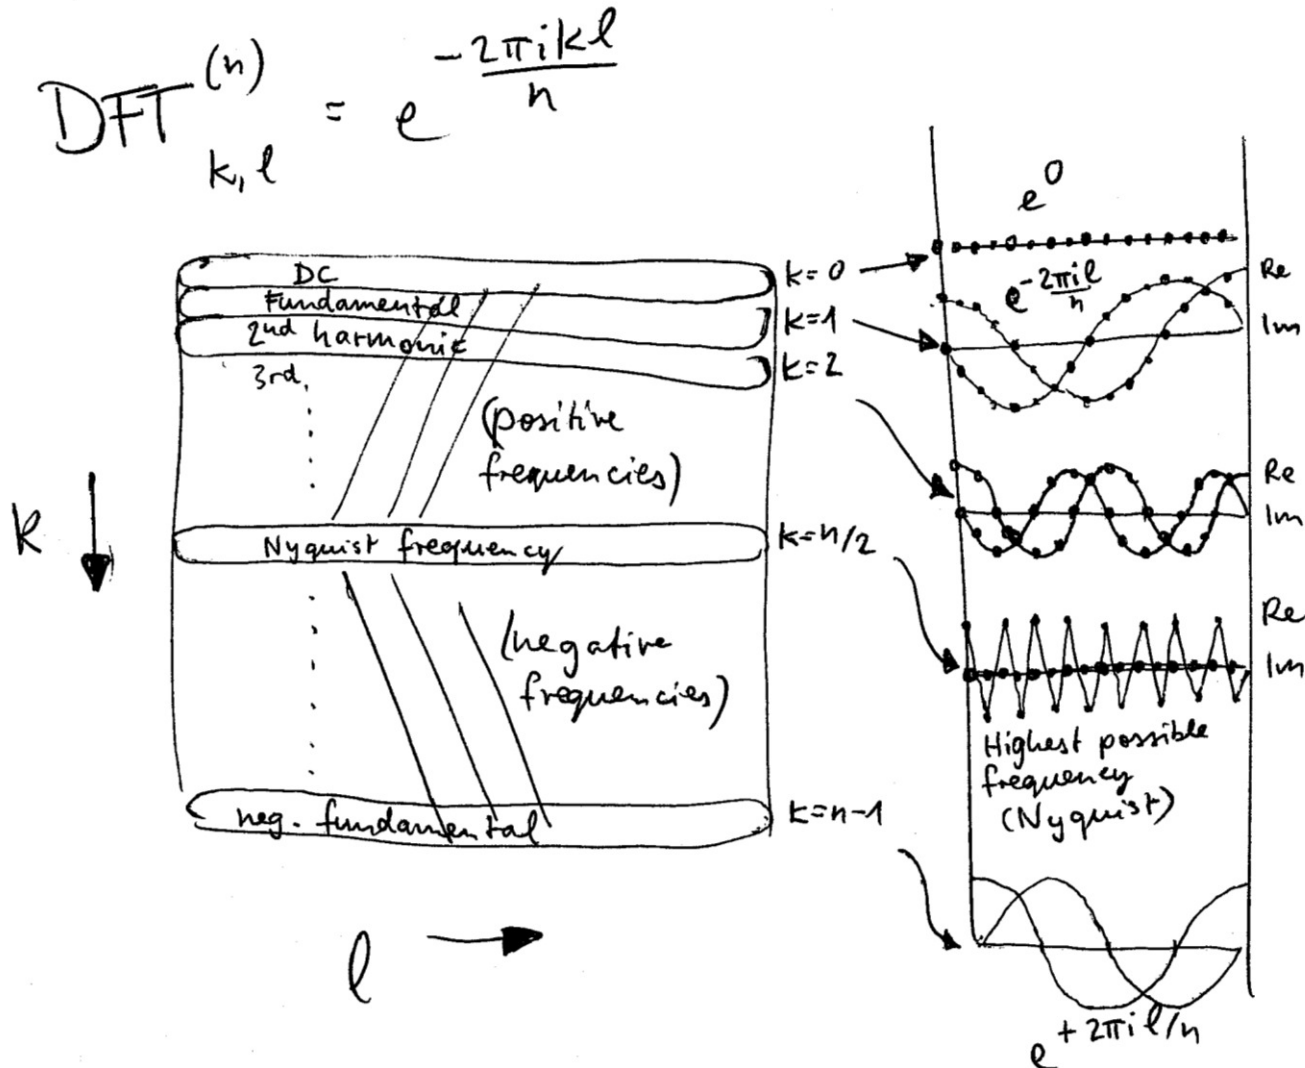 DFT^(n)_k,l = e^(-2πikl/n)
DC
Fundamental
2nd harmonic
3rd
(positive
frequencies)
Nyquist frequency
(negative
frequencies)
neg. fundamental
k
l
k=0
k=1
k=2
k=n/2
k=n-1
e^0
e^(-2πil/n)
Re
Im
Re
Im
Re
Im
Highest possible
frequency
(Nyquist)
e^(+2πil/n)